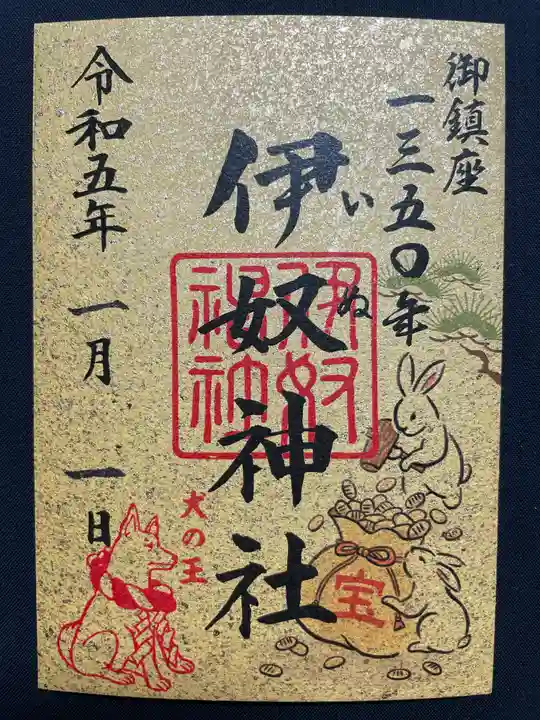 御鎮座
一三五〇年
伊奴神社
いぬ
伊奴
神社
犬の王
宝
令和五年 一月 一日